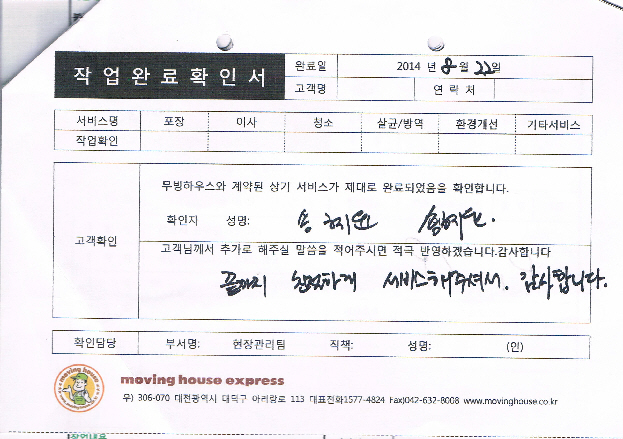 작업완료확인서
완료일 2014 년 8 월 22일
고객명 연락처
서비스명 포장 이사 청소 살균/방역 환경개선 기타서비스
작업확인
고객확인
무빙하우스와 계약된 상기 서비스가 제대로 완료되었음을 확인합니다.
확인자 성명:
고객님께서 추가로 해주실 말씀을 적어주시면 적극 반영하겠습니다.감사합니다
끝까지 친절하게 서비스해주셔서. 감사합니다.
확인담당 부서명: 현장관리팀 직책: 성명: (인)
moving house
moving house express
우) 306-070 대전광역시 대덕구 아리랑로 113 대표전화1577-4824 Fax)042-632-8008 www.movinghouse.co.kr